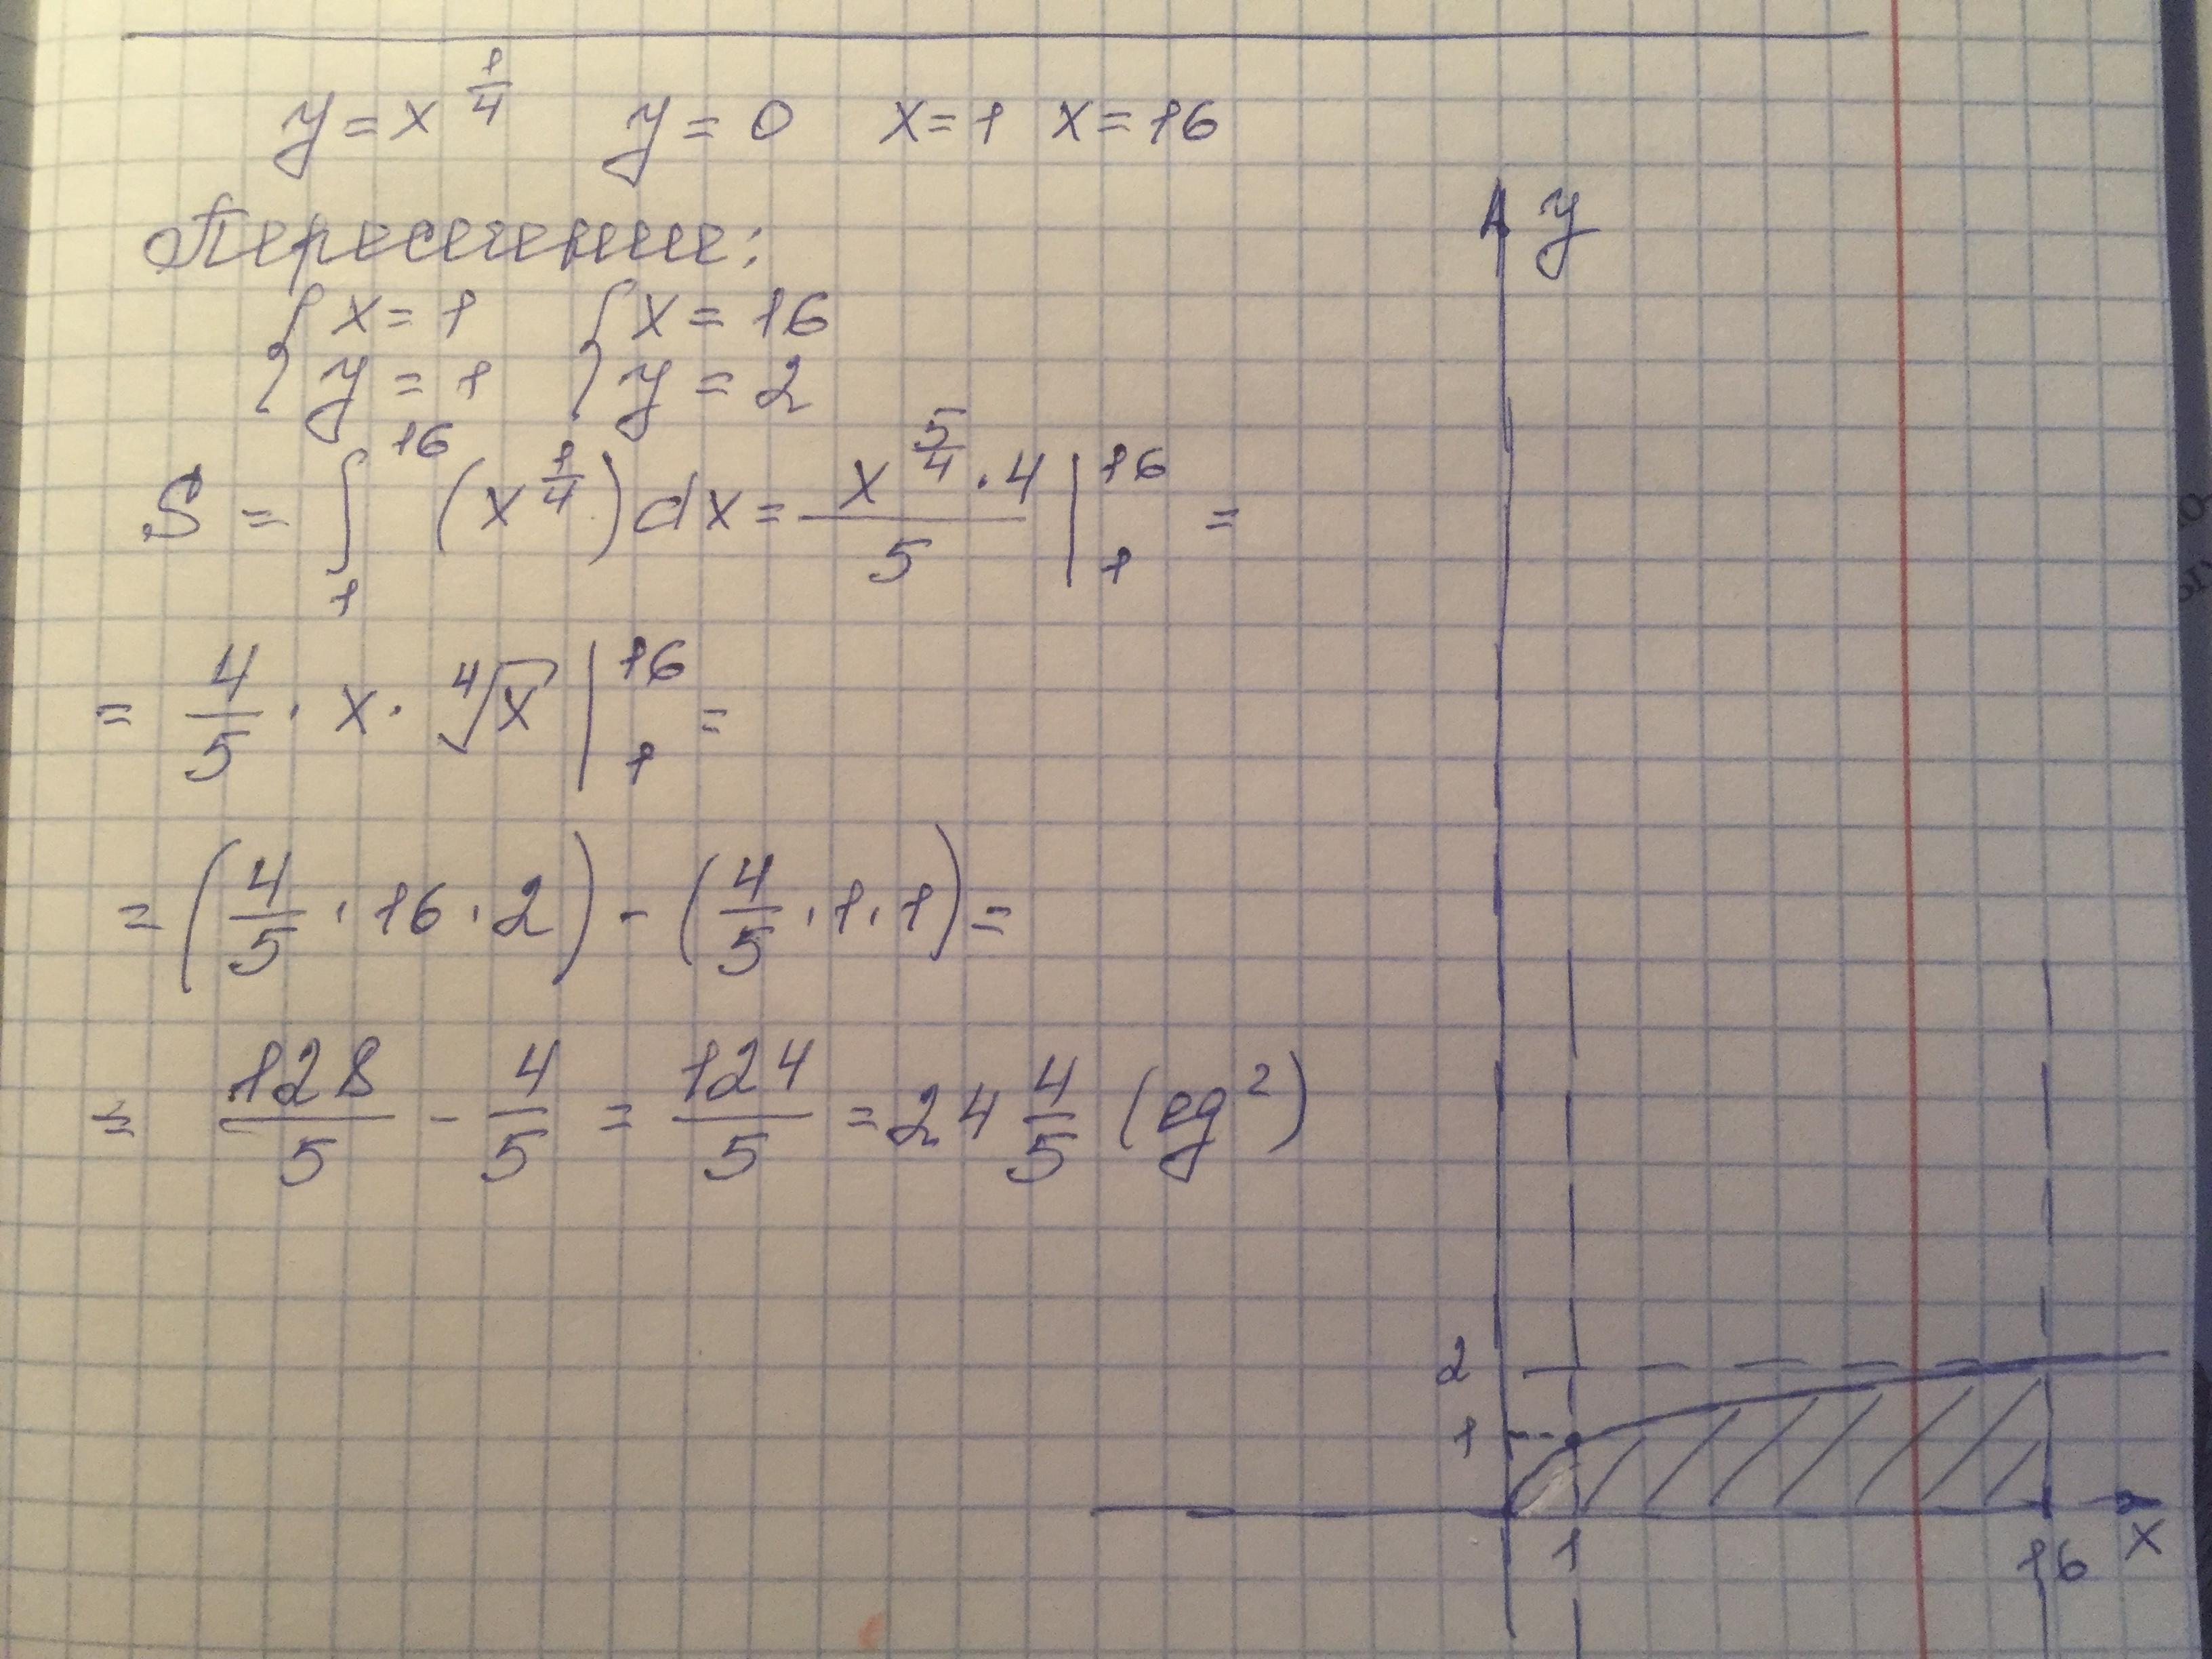 y = x^{1/4}   y = 0   x = 1   x = 16
Пересечение:
{ x = 1   { x = 16
{ y = 1   { y = 2
S = ∫_1^{16} (x^{1/4}) dx = \frac{x^{5/4} · 4}{5} |_1^{16} =
= 4/5 · x · ∜x |_1^{16} =
= (4/5 · 16 · 2) - (4/5 · 1 · 1) =
= 128/5 - 4/5 = 124/5 = 24 4/5 (ед²)
y
2
1
1
16
x